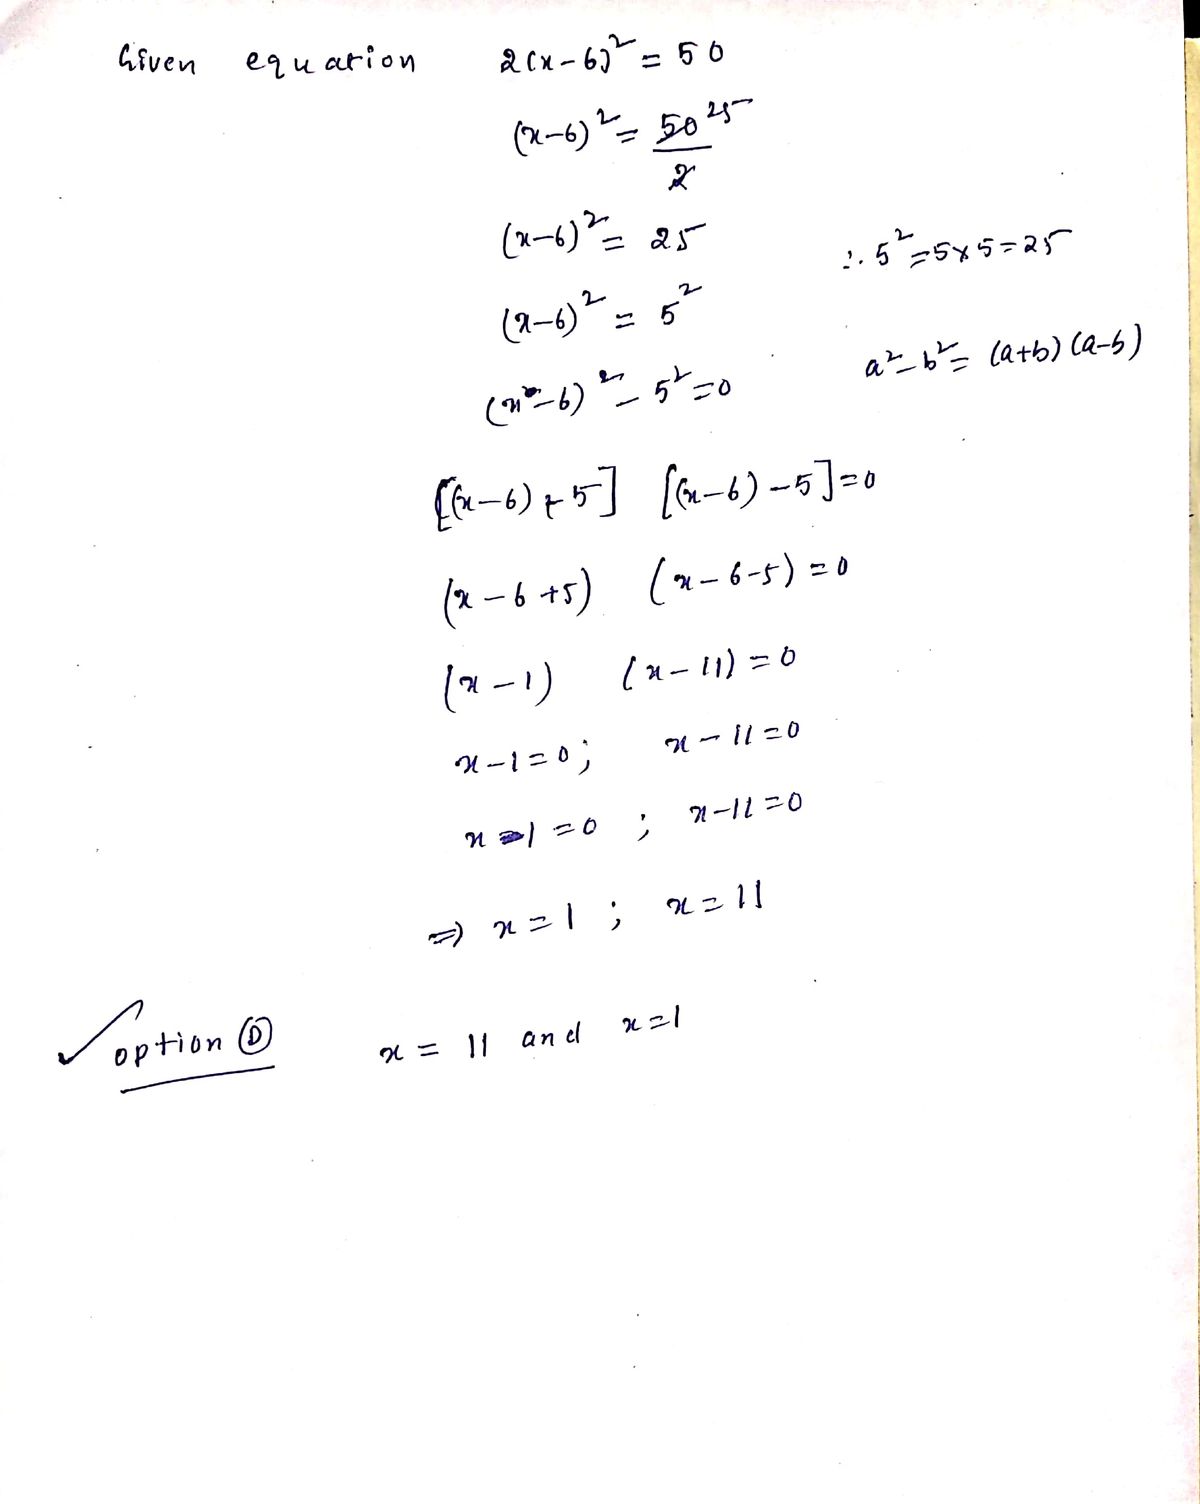 Given equation 2(x-6)² = 50
(x-6)² = 50 25
2
(x-6)² = 25
∴ 5² = 5x5 = 25
(x-6)² = 5²
a² - b² = (a+b) (a-b)
(x-6)² - 5² = 0
[(x-6) + 5] [(x-6) - 5] = 0
(x - 6 + 5) (x - 6 - 5) = 0
(x - 1) (x - 11) = 0
x - 1 = 0 ; x - 11 = 0
x - 1 = 0 ; x - 11 = 0
⇒ x = 1 ; x = 11
✓ option Ⓓ x = 11 and x = 1